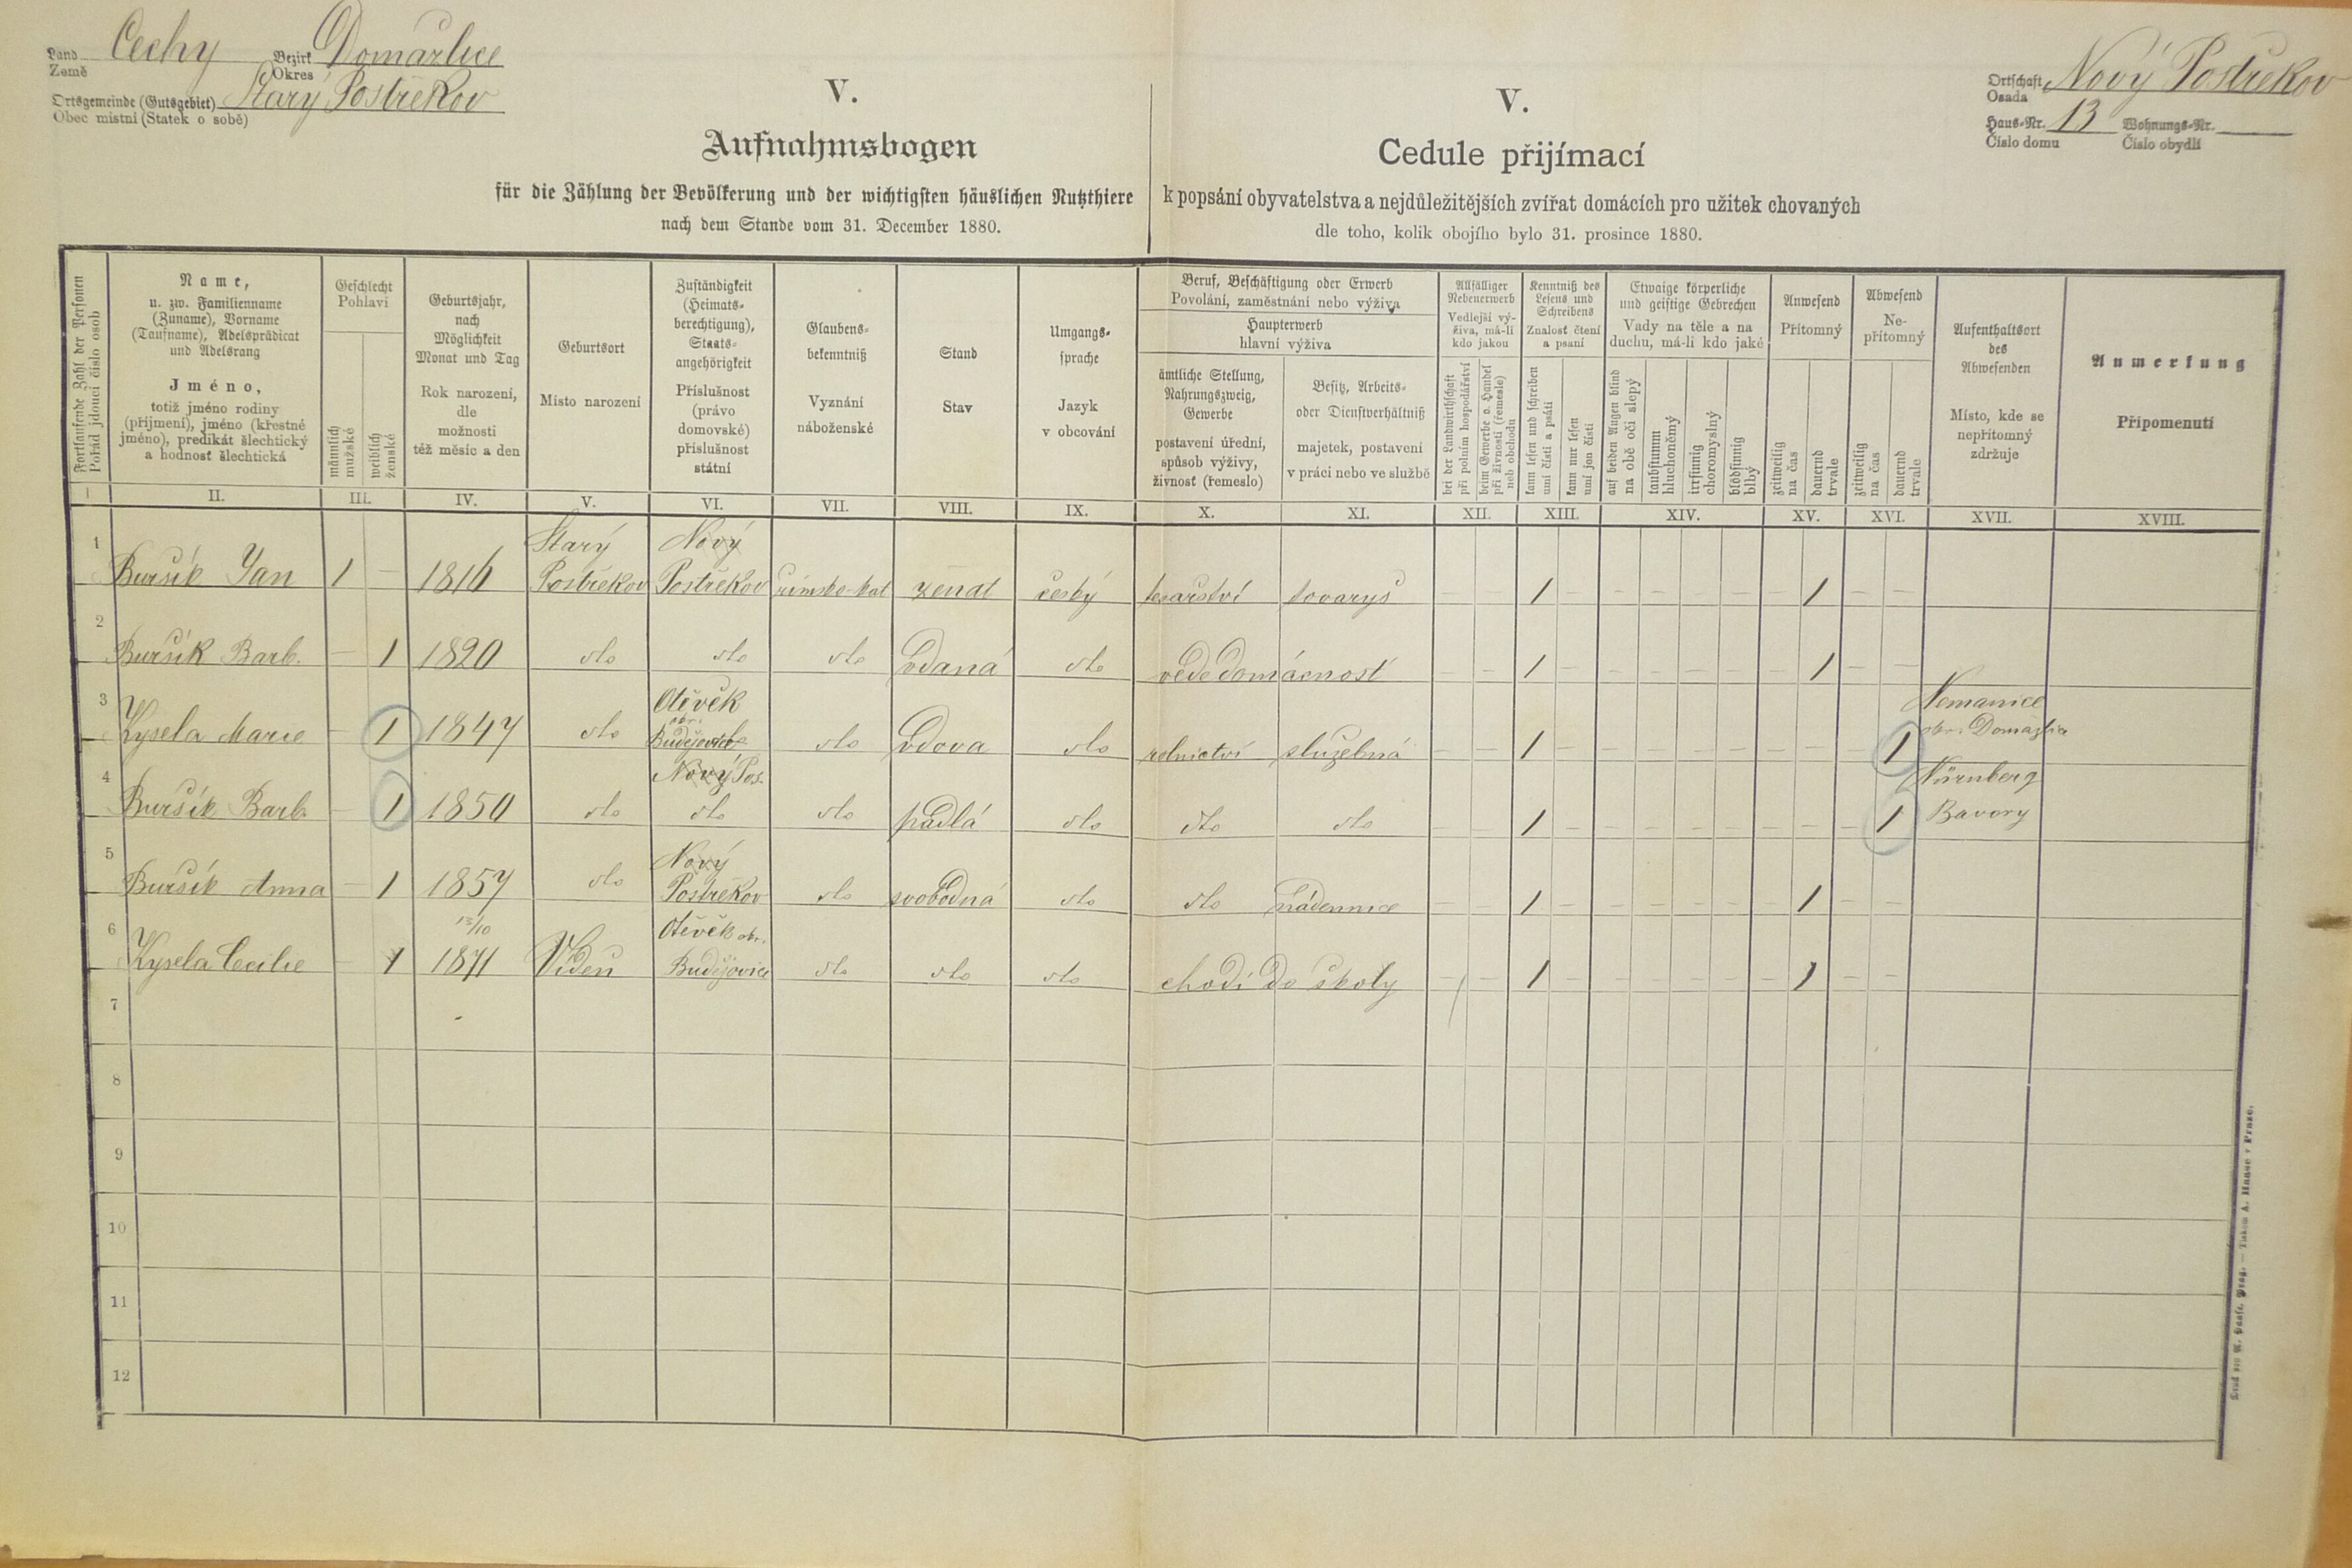 Land Čechy Bezirk Domažlice
Země Okres
Ortsgemeinde (Gutsgebiet) Starý Postřekov
Obec místní (Statek o sobě)
Ortschaft Nový Postřekov
Osada
Haus-Nr. 13 Wohnungs-Nr.
Číslo domu Číslo obydlí
V.
Aufnahmsbogen
für die Zählung der Bevölkerung und der wichtigsten häuslichen Nutzthiere
nach dem Stande vom 31. December 1880.
V.
Cedule přijímací
k popsání obyvatelstva a nejdůležitějších zvířat domácích pro užitek chovaných
dle toho, kolik obojího bylo 31. prosince 1880.
Fortlaufende Zahl der Personen
Pořád jdoucí číslo osob
Name,
u. zw. Familienname
(Zuname), Vorname
(Taufname), Adelsprädicat
und Adelsrang
Jméno,
totiž jméno rodiny
(příjmení), jméno (křestné
jméno), predikát šlechtický
a hodnosť šlechtická
Geschlecht
Pohlaví
männlich
mužské
weiblich
ženské
Geburtsjahr,
nach
Möglichkeit
Monat und Tag
Rok narození,
dle
možnosti
též měsíc a den
Geburtsort
Místo narození
Zuständigkeit
(Heimats-
berechtigung),
Staats-
angehörigkeit
Příslušnost
(právo
domovské)
příslušnost
státní
Glaubens-
bekenntniß
Vyznání
náboženské
Stand
Stav
Umgangs-
sprache
Jazyk
v obcování
Beruf, Beschäftigung oder Erwerb
Povolání, zaměstnání nebo výživa
Haupterwerb
hlavní výživa
ämtliche Stellung,
Nahrungszweig,
Gewerbe
postavení úřední,
spůsob výživy,
živnosť (řemeslo)
Besitz, Arbeits-
oder Dienstverhältniß
majetek, postavení
v práci nebo ve službě
Allfälliger
Nebenerwerb
Vedlejší vý-
živa, má-li
kdo jakou
bei der Landwirthschaft
při polním hospodářství
beim Gewerbe o. Handel
při živnosti (řemesle)
neb obchodu
Kenntniß des
Lesens und
Schreibens
Znalosť čtení
a psaní
kann lesen und schreiben
umí čísti a psáti
kann nur lesen
umí jen čísti
Etwaige körperliche
und geistige Gebrechen
Vady na těle a na
duchu, má-li kdo jaké
auf beiden Augen blind
na obě oči slepý
taubstumm
hluchoněmý
irrsinnig
choromyslný
blödsinnig
blbý
Anwesend
Přítomný
zeitweilig
na čas
dauernd
trvale
Abwesend
Ne-
přítomný
zeitweilig
na čas
dauernd
trvale
Aufenthaltsort
des
Abwesenden
Místo, kde se
nepřítomný
zdržuje
Anmerkung
Připomenutí
I II. III. IV. V. VI. VII. VIII. IX. X. XI. XII. XIII. XIV. XV. XVI. XVII. XVIII.
1 Starý Nový
Buršík Jan 1 – 1816 Postřekov Postřekov římsko-kat ženat český tesařství tovaryš – – 1 – – – – – – 1 – –
2 Buršík Barb. – 1 1820 dto dto dto vdaná dto vede domácnosť – – 1 – – – – – – 1 – –
3 Otěvěk Nemanice
okr. okr. Domažlice
Kysela Marie – 1 1847 dto Budějovice dto vdova dto rolnictví služebná – – 1 – – – – – – – – 1
4 Nový Pos. Nürnberg
Buršík Barb. – 1 1850 dto dto dto padlá dto dto dto – – 1 – – – – – – – – 1 Bavory
5 Nový
Buršík Anna – 1 1857 dto Postřekov dto svobodná dto dto nádennice – – 1 – – – – – – 1 – –
6 13/10 Otěvěk okr.
Kysela Cecilie – 1 1871 Vídeň Budějovice dto dto dto chodí do školy – – 1 – – – – – – 1 – –
7
8
9
10
11
12
Druck von A. Haase, Prag. — Tiskem A. Haase v Praze.